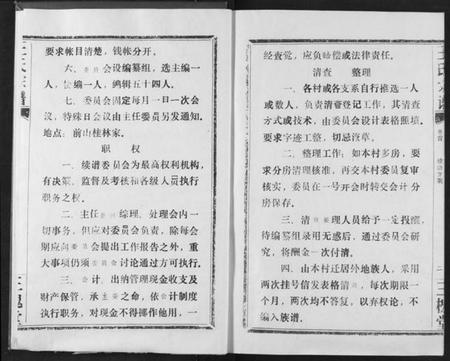 要求帐目清楚，钱帐分开。
六、委员会设编纂组，选主编一
人，编一人，鸠辑五十四人。
七、委员会固定每月一日一次会
议，特殊日会议由主任委员另发通知。
地点：前山桂林家。
职 权
一、续谱委员会为最高权利机构，
有决策、监督及考核和各级人员执行
职务之权。
二、主任委员综理、处理会内一
切事务，但应对委员会负责，除每会
期应向委员会提出工作报告之外，重
大事项仍须委员会讨论通过方可执行。
三、会计、出纳管理现金收支及
财产保管，承主委之命，依会计制度
执行职务，对现金不得挪作他用，一
经查觉，应负赔偿或法律责任。
清查 整理
一、各村或各支系自行推选一人
或数人，负责清查登记工作，其清查
方式或技术，由委员会设计表格照填。
要求字迹工整，切忌潦草。
二、整理工作：如本村多房，要
求分房清理核准，再交本村委员复审
核实，委员在一号开会时转交会计分
房保存。
三、清查整理人员给予一定报酬，
待编纂组录用无惑后，通过委员会研
究，将酬金一次付清。
四、由本村迁居外地族人，采用
两次挂号信发表格清查，每次期限一
个月，两次均不答复，以弃权论，不
编入族谱。
王氏宗谱
卷首
三槐堂